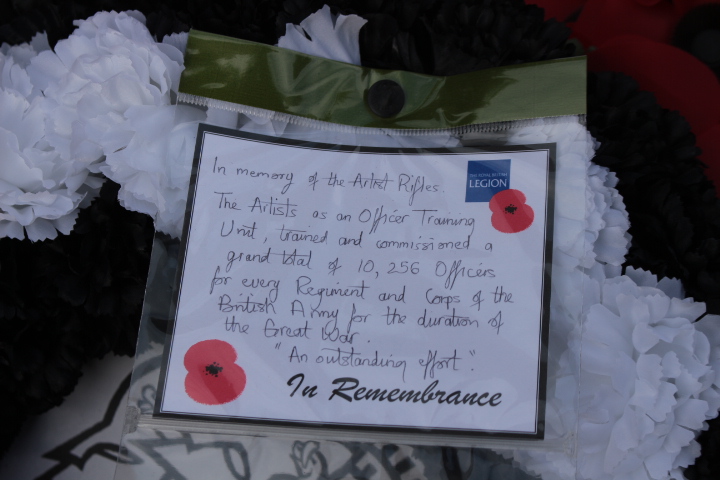 In memory of the Artist Rifles.
THE ROYAL BRITISH
LEGION
The Artists as an Officer Training
Unit, trained and commissioned a
grand total of 10,256 Officers
for every Regiment and Corps of the
British Army for the duration of
the Great War.
"An outstanding effort".
In Remembrance